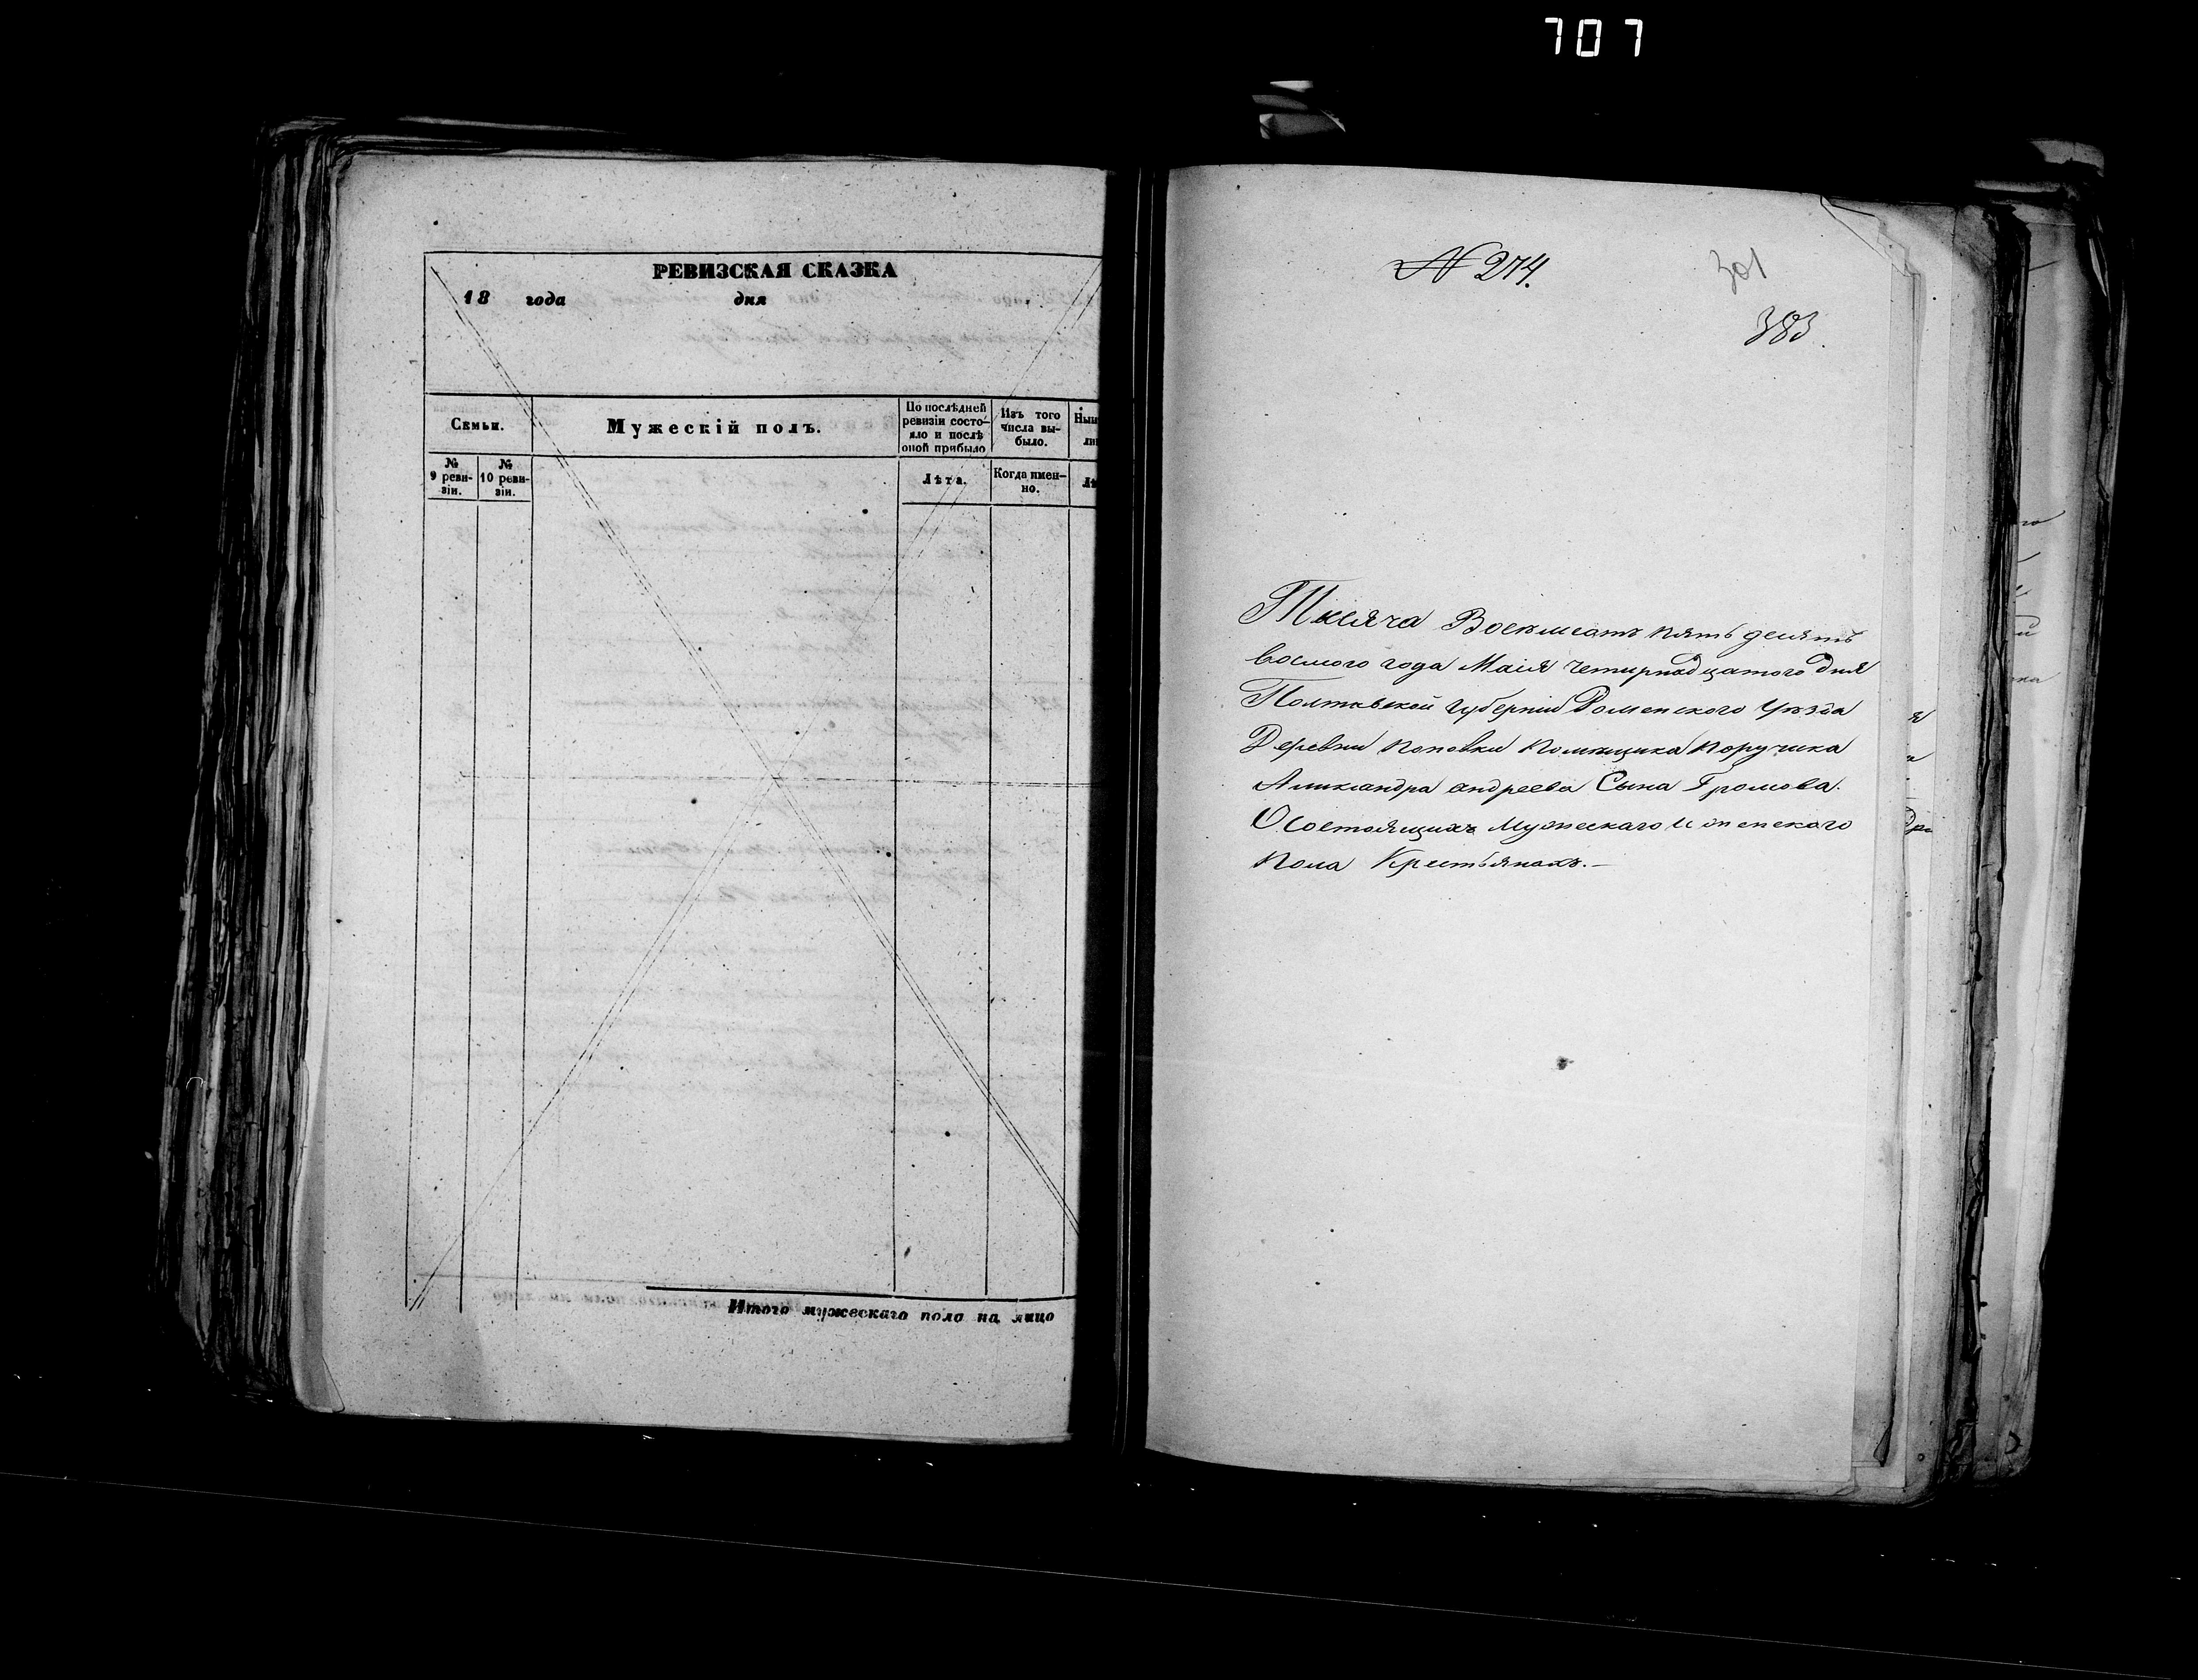 707
РЕВИЗСКАЯ СКАЗКА
18 года дня
Семьи.
Мужескій полъ.
По послѣдней ревизіи состо-
яло и послѣ оной прибыло
Изъ того числа вы-
было.
№ 9 реви-
зіи.
№ 10 реви-
зіи.
Лѣта.
Когда имен-
но.
Итого мужескаго пола на лицо
№ 274.
301
383.
Тысяча Восемсатъ пять десятъ
восмого года Маія четирнадцатого дня
Полтавской губерніи Роменского Уѣзда
Деревни Поповки Помѣщика Поручика
Александра андреева Сына Громова.
О состоящихъ Мужескаго и женского
Пола Крестьянахъ.—